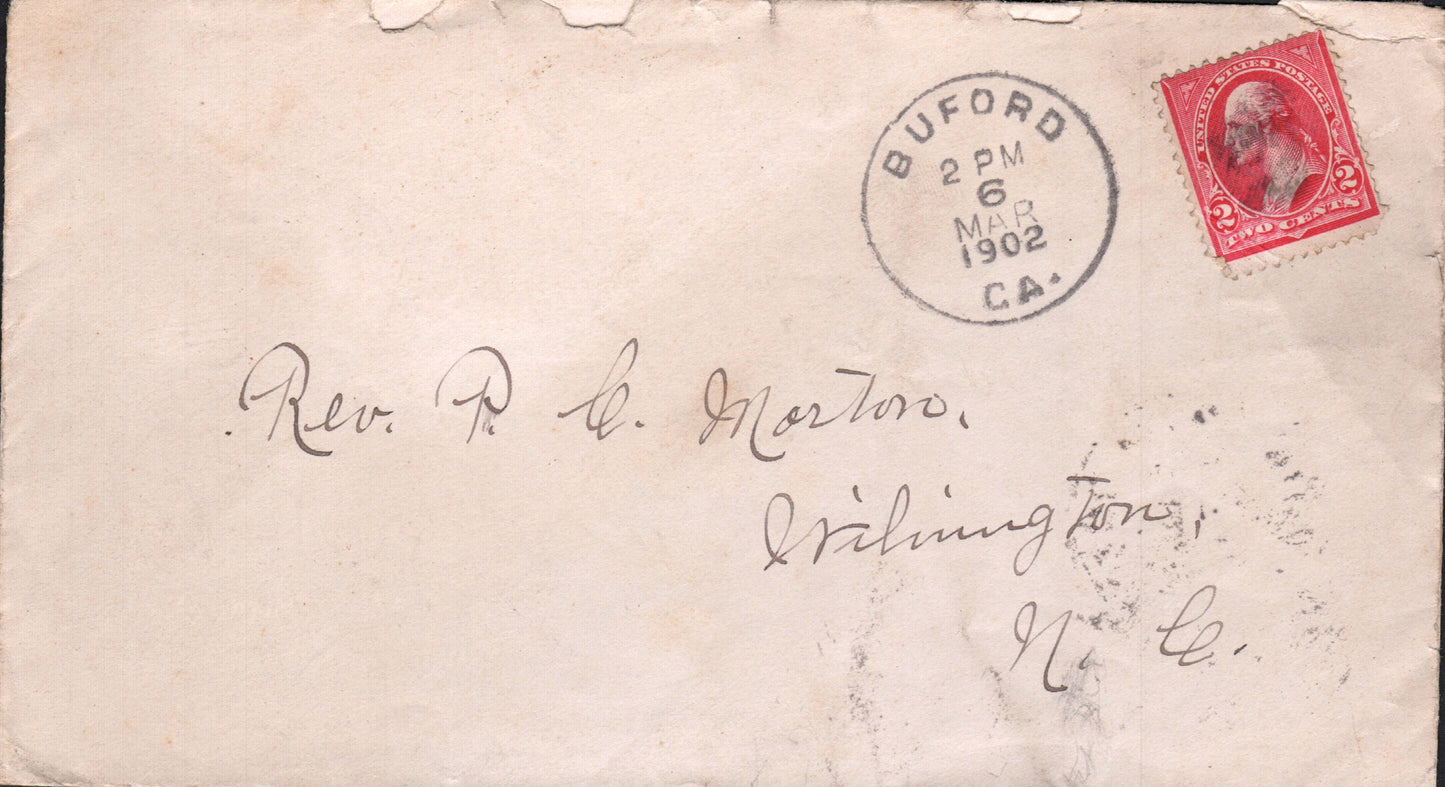 BUFORD
2 PM
6
MAR
1902
GA.
UNITED STATES POSTAGE
2 2
TWO CENTS
Rev. P. C. Morton.
Wilmington,
N. C.